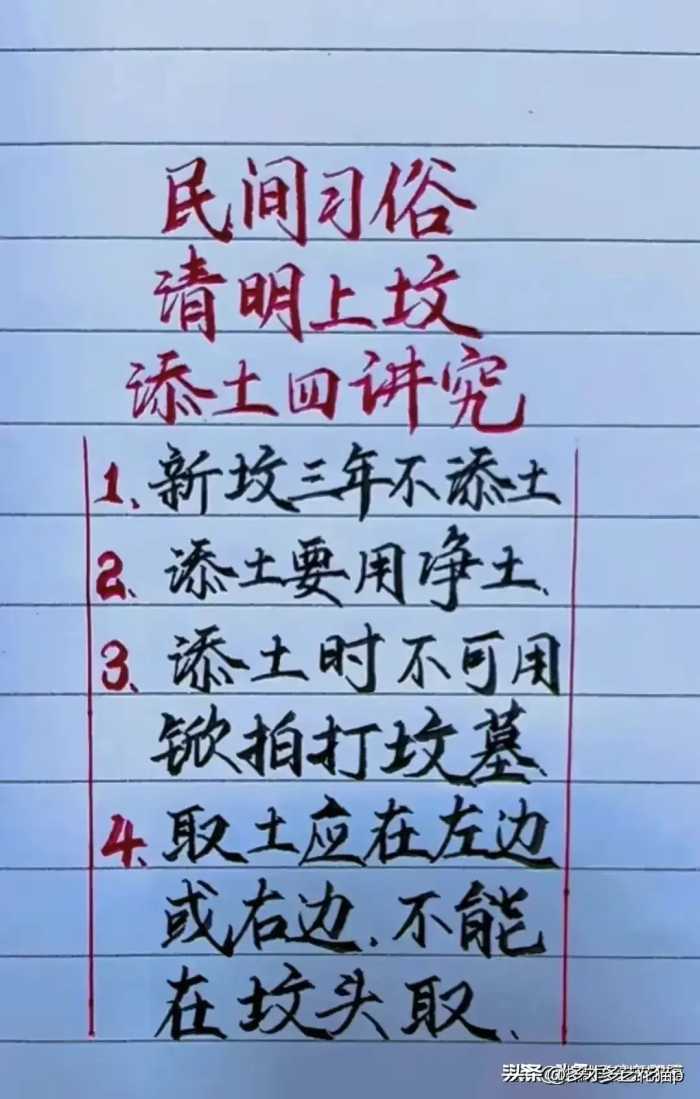 民间习俗
清明上坟
添土四讲究
1、新坟三年不添土
2、添土要用净土、
3、添土时不可用
锨拍打坟墓、
4、取土应在左边
或右边、不能
在坟头取、
头条